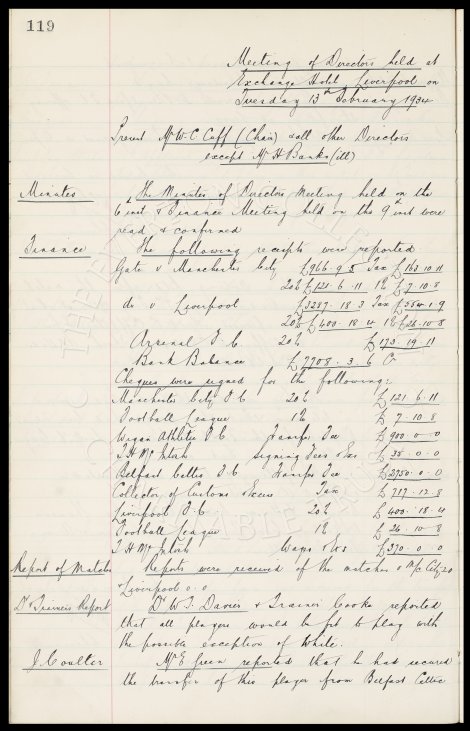 119
Meeting of Directors held at
Exchange Hotel Liverpool on
Tuesday 13th February 1934
Present Mr W. C. Cuff (Chair) & all other Directors
except Mr H Banks (ill)
Minutes The Minutes of Directors Meeting held on the
6th inst & Finance Meeting held on the 9th inst were
read & confirmed
Finance The following receipts were reported
Gate v Manchester City £966. 9. 5 Tax £163 10 11
20% £121. 6. 11 1% £7. 10. 8
do v Liverpool £3287. 18 3 Tax £554. 1. 9
20% £400. 18. 4 1% £26. 10. 8
Arsenal F. C. 20% £173. 19. 11
Bank Balance £7708. 3. 6 Cr
Cheques were signed for the following:
Manchester City F C 20% £121 6. 11
Football League 1% £7. 10. 8
Wigan Athletic F. C Transfer Fee £400. 0. 0
T H McIntosh Signing Fees &es £35. 0. 0
Belfast Celtic F. C Transfer Fee £2750. 0. 0
Collector of Customs & Excise Tax £717. 12. 8
Liverpool F. C 20% £400. 18. 4
Football League 1% £26. 10. 8
T H McIntosh Wages &es £370. 0. 0
Report of Matches Reports were received of the matches v M/c. City 2.0
v Liverpool 0. 0
Dr & Trainers Report Dr W. T. Davies & Trainer Cooke reported
that all players would be fit to play with
the possible exception of White.
J. Coulter Mr E Green reported that he had secured
the transfer of this player from Belfast Celtic